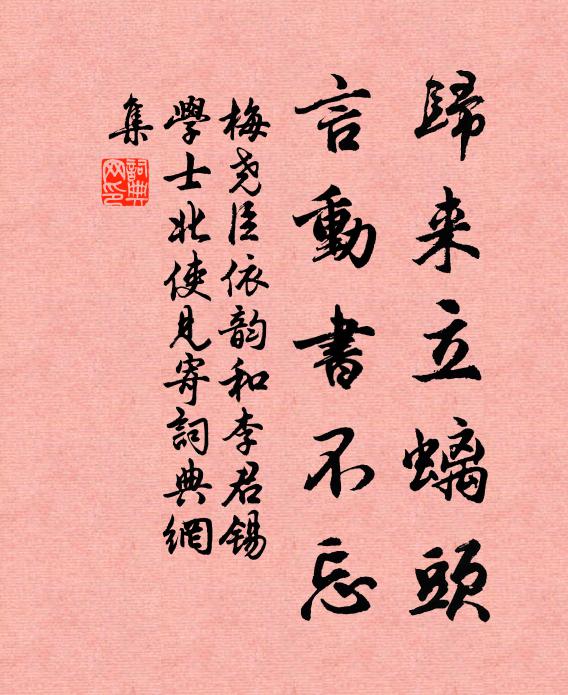 歸来立螭頭
言動書不忘
梅尧臣依韵和李君锡
學士北使見寄詞典網
集
詞典網印